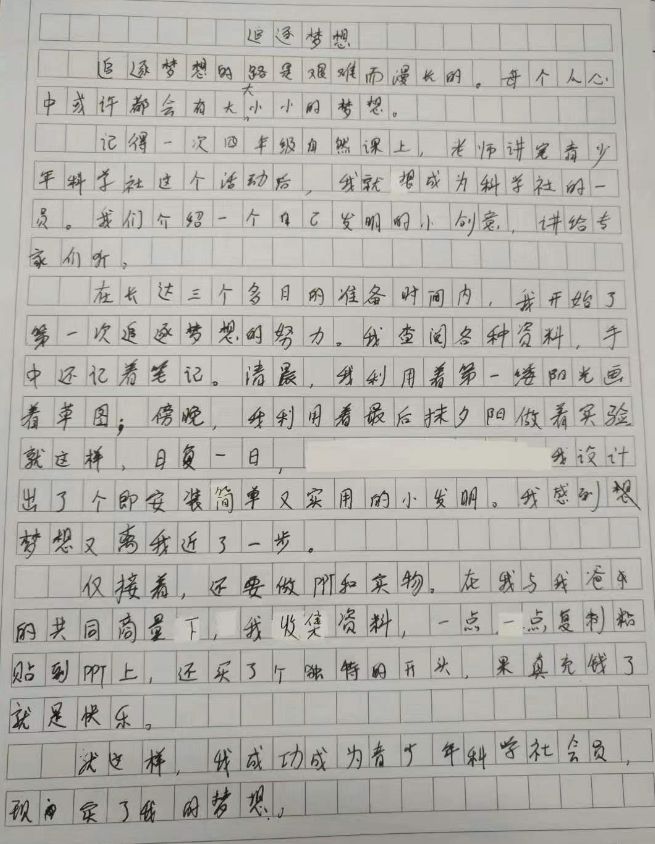 追逐梦想
追逐梦想的路是艰难而漫长的。每个人心
中或许都会有大大小小的梦想。
记得一次四年级自然课上，老师讲完青少
年科学社这个活动后，我就想成为科学社的一
员。我们介绍一个自己发明的小创意，讲给专
家们听。
在长达三个多月的准备时间内，我开始了
第一次追逐梦想的努力。我查阅各种资料，手
中还记着笔记。清晨，我利用着第一缕阳光画
着草图；傍晚，我利用着最后抹夕阳做着实验
就这样，日复一日，我设计
出了个即安装简单又实用的小发明。我感到想
梦想又离我近了一步。
仅接着，还要做PPT和实物。在我与我爸爸
的共同商量下，我收集资料，一点一点复制粘
贴到PPT上，还买了个独特的开头，果真充钱了
就是快乐。
就这样，我成功成为青少年科学社会员，
现实了我的梦想。